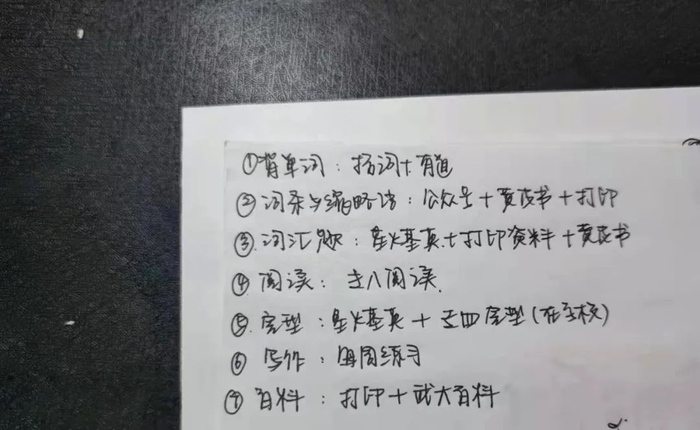 ①背单词：扬词+有道
②词条与缩略语：公众号+黄皮书+打印
③词汇题：星火基英+打印资料+黄皮书
④阅读：专八阅读
⑤完型：星火基英+专四完型(在至核)
⑥写作：每周练习
⑦百科：打印+武大百科